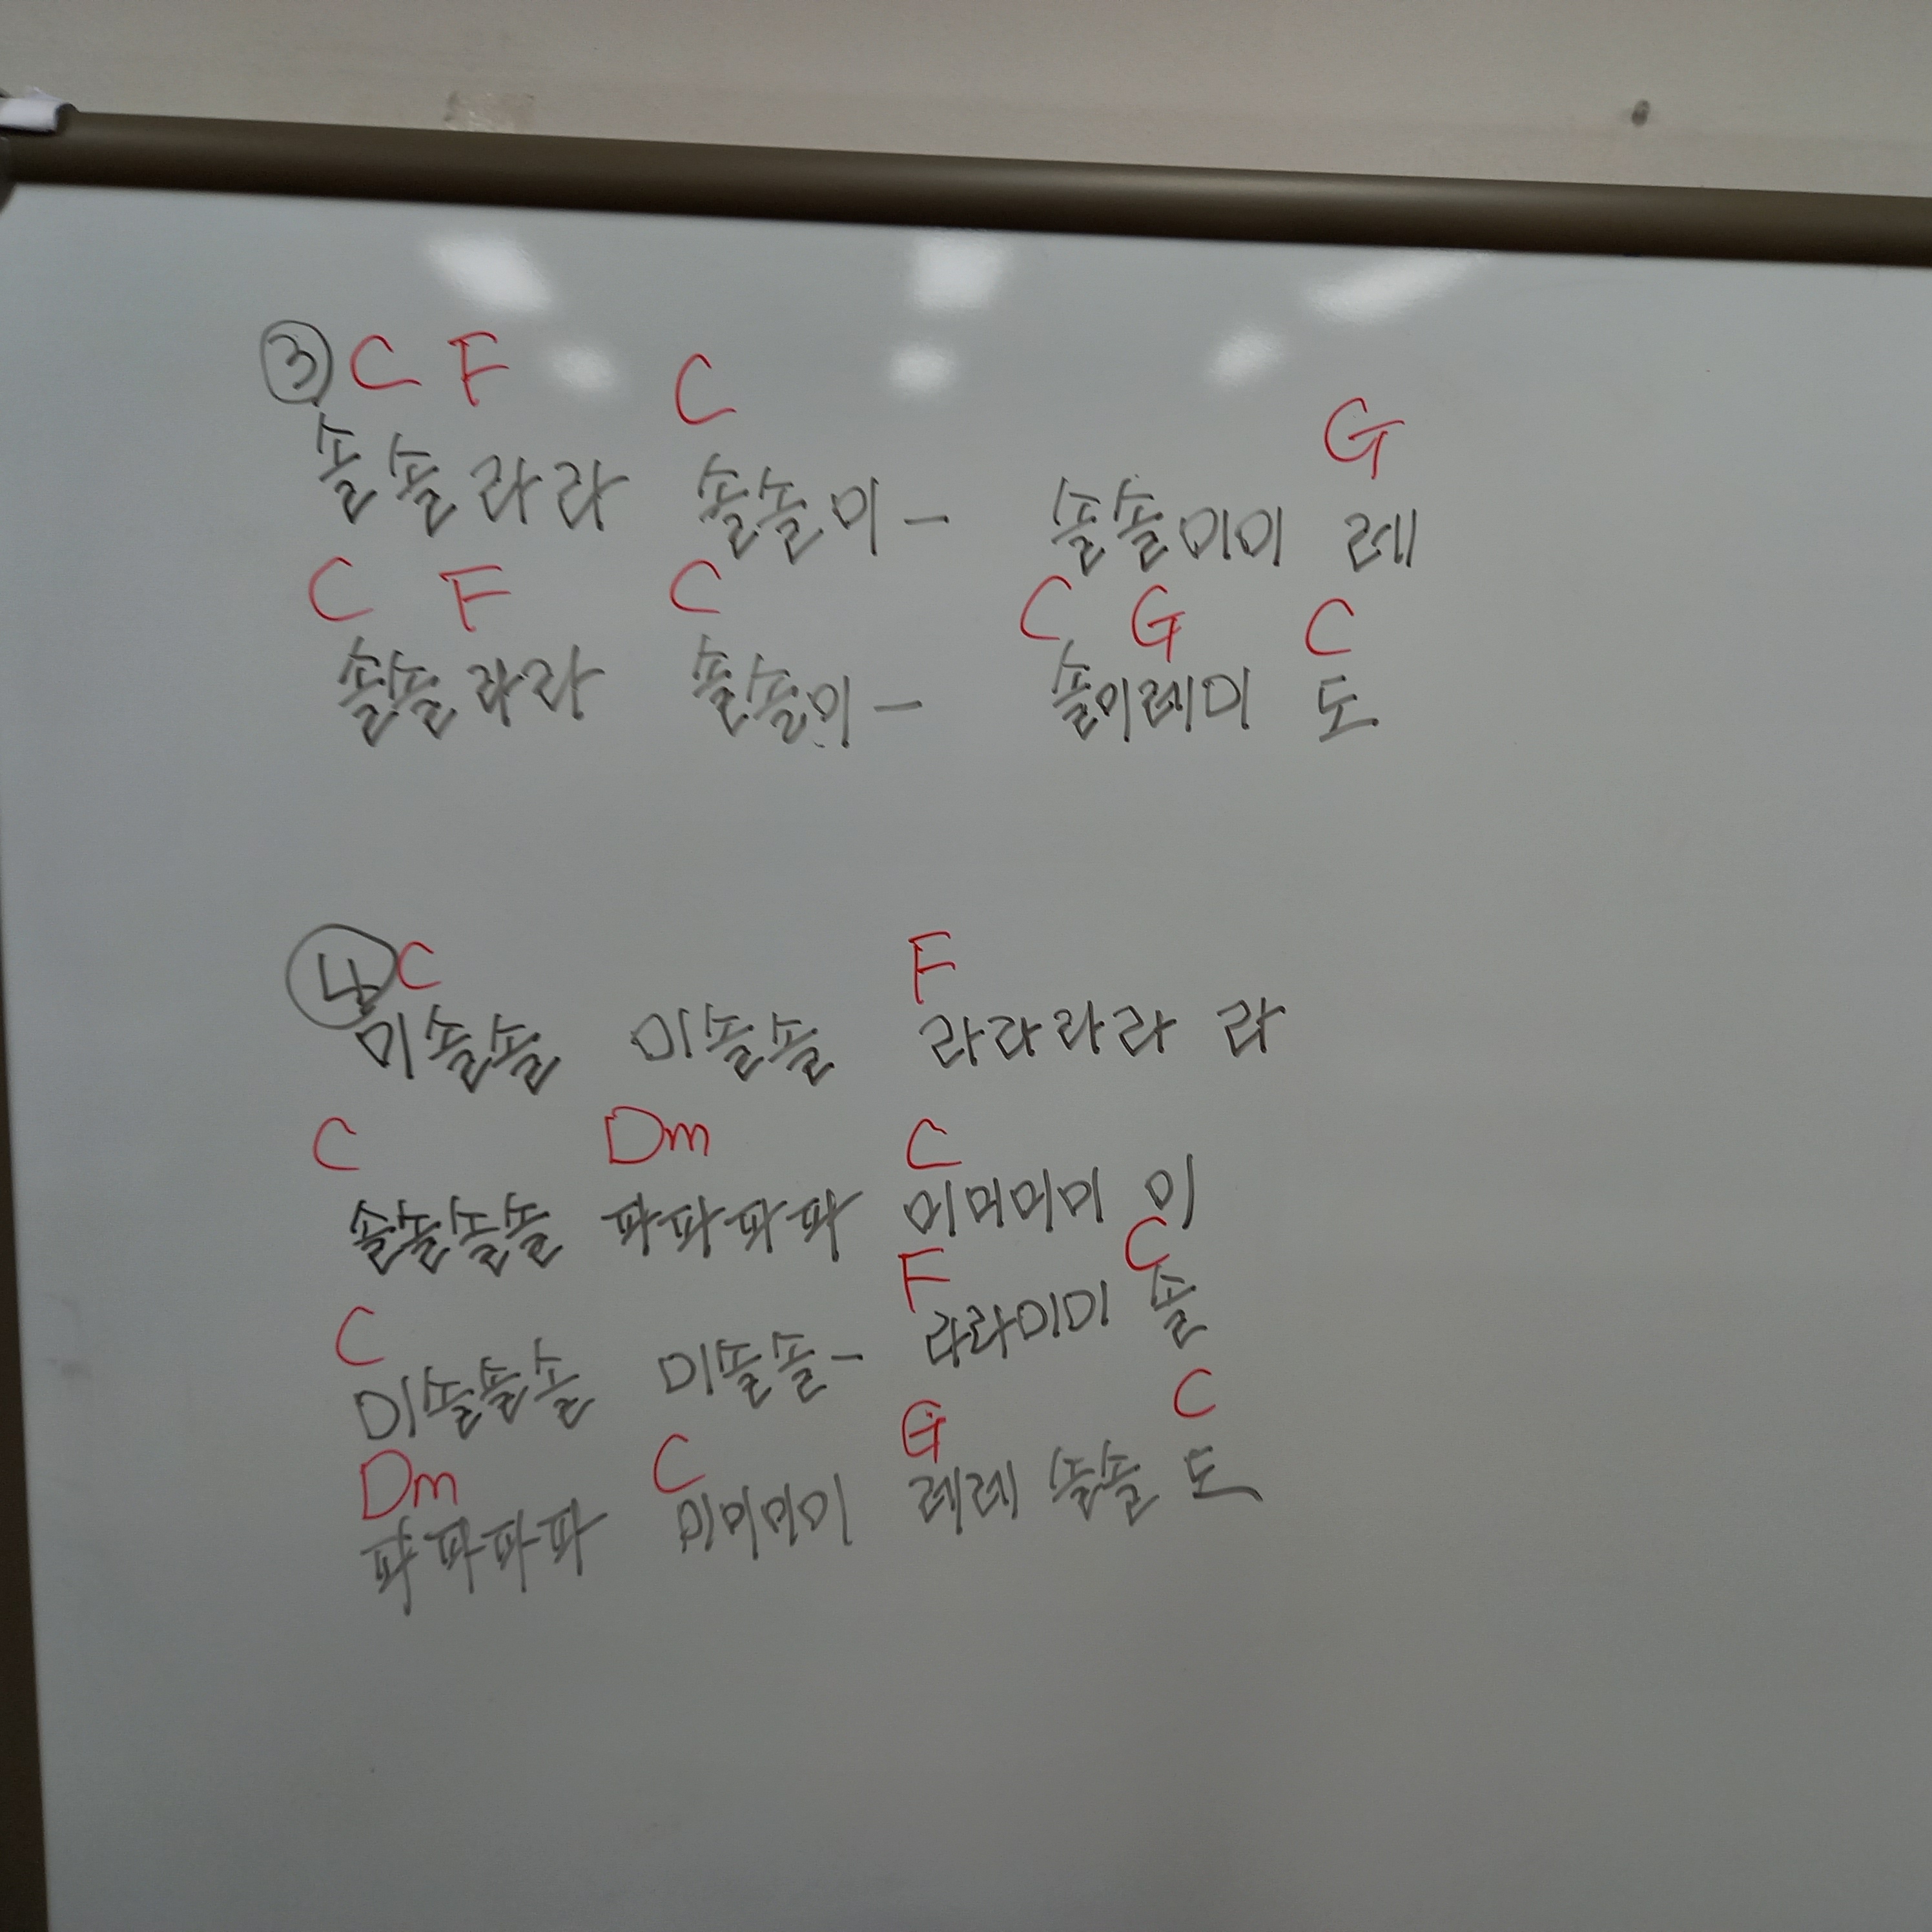 ③ C F C G
솔솔라라 솔솔미- 솔솔미미 레
C F C C G C
솔솔라라 솔솔미- 솔미레미 도
④ C F
미솔솔 미솔솔 라라라라 라
C Dm C
솔솔솔솔 파파파파 미미미미 미
C F C
미솔솔솔 미솔솔- 라라미미 솔
Dm C G C
파파파파 미미미미 레레 솔솔 도